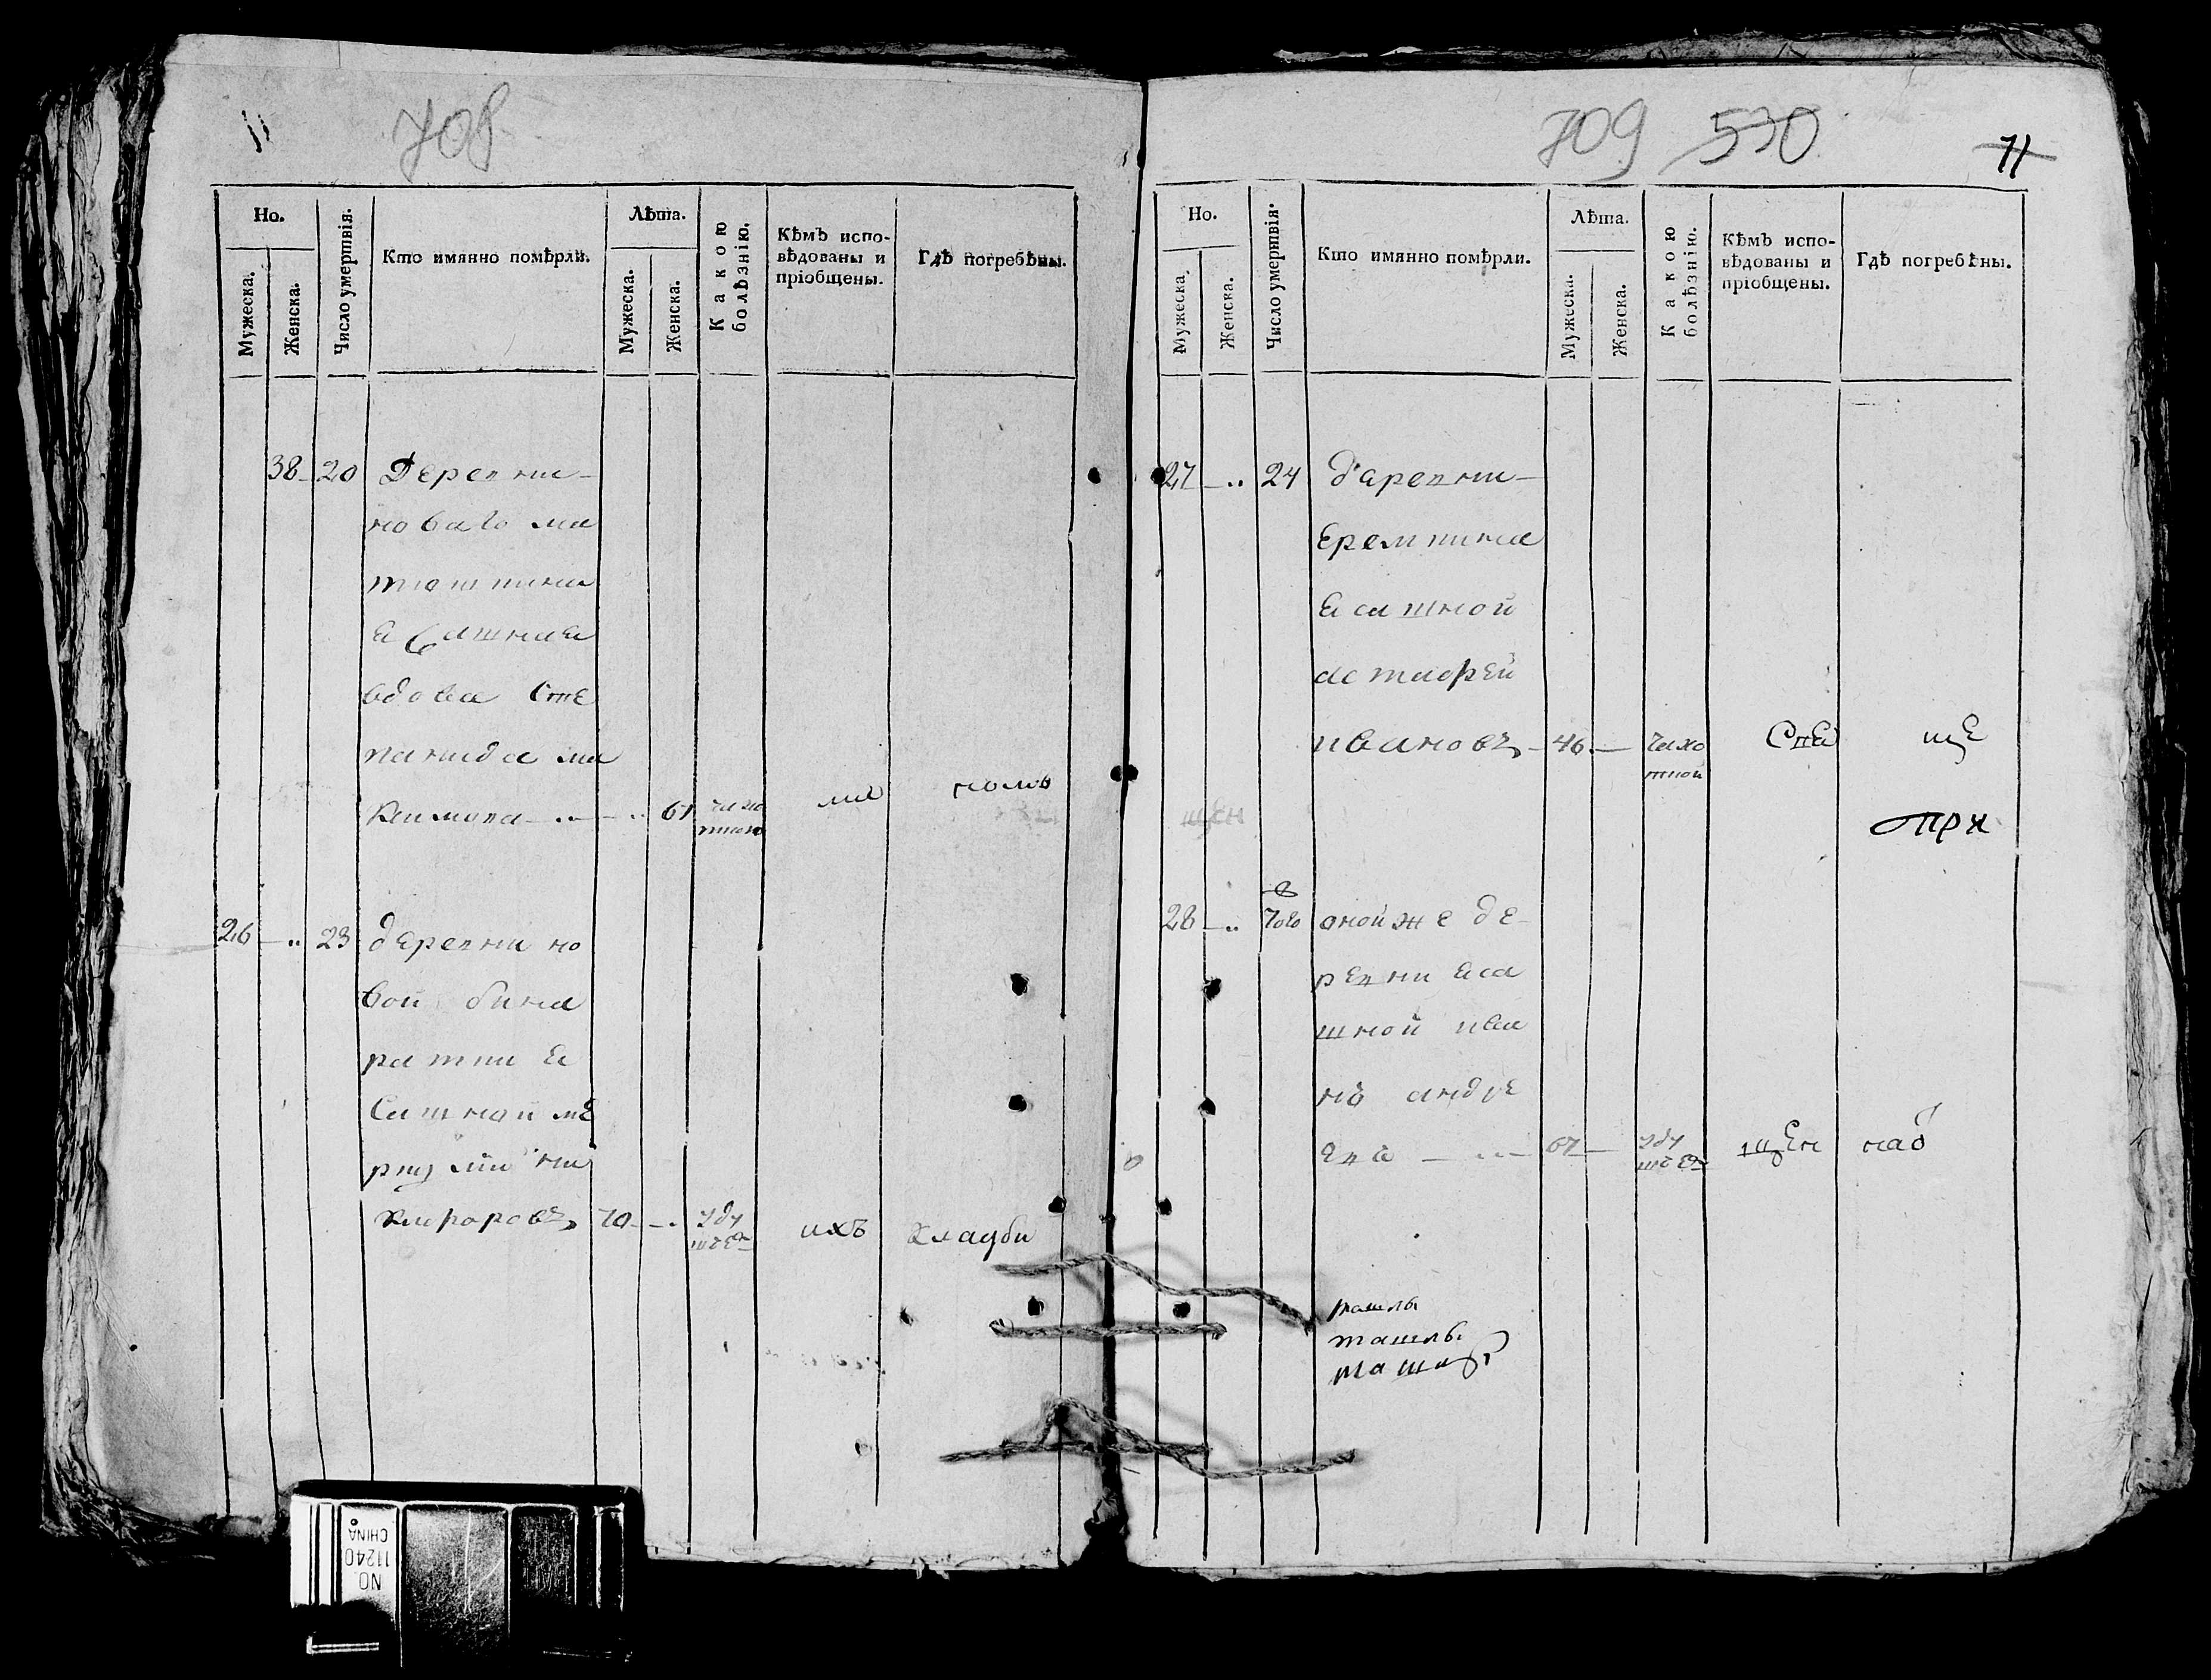 708
Но.
Мужеска.
Женска.
Число умертвія.
Кто имянно помѣрли.
Лѣта.
Мужеска.
Женска.
Какою болѣзнію.
Кѣмъ испо-
вѣдованы и
пріобщены.
Гдѣ погребѣны.
38 20 Деревни
новаго ма
тюшкина
ясашная
вдова Сте
панида ма
Ксимова 61 чахо
ткою
26 23 деревни но
вой бина
ратки я
Сашной ме
Кифоровъ 70 уду
шьем ихъ Кладби
709 530
71
Но.
Мужеска.
Женска.
Число умертвія.
Кто имянно помѣрли.
Лѣта.
Мужеска.
Женска.
Какою болѣзнію.
Кѣмъ испо-
вѣдованы и
пріобщены.
Гдѣ погребѣны.
27 24 деревни
Еремкина
ясашной
астафей
ивановъ 46 чахо
ткой ще
при
28 того оной же де
ревни яса
шной ива
нъ андре
евъ 67 уду
шьем щен
NO.
11240
CHINA